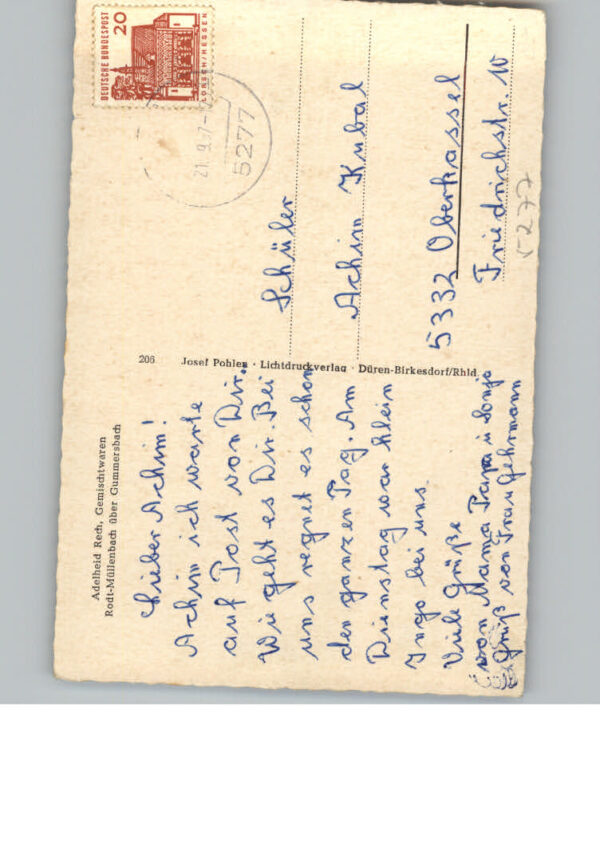 Adelheid Rech, Gemischtwaren
Rodt-Müllenbach über Gummersbach
Lieber Achim!
Achim ich warte
auf Post von Dir.
Wie geht es Dir. Bei
uns regnet es schon
den ganzen Tag. Am
Dienstag war klein
Ingo bei uns.
Viele Grüße
von Mama Papa u Sonja
Gruß von Frau Gehrmann
206 Josef Pohlen · Lichtdruckverlag · Düren-Birkesdorf/Rhld.
DEUTSCHE BUNDESPOST
20
LORSCH/HESSEN
21.9.67
5277
Schüler
Achim Kubal
5332 Oberkassel
Friedrichstr. 10
5277